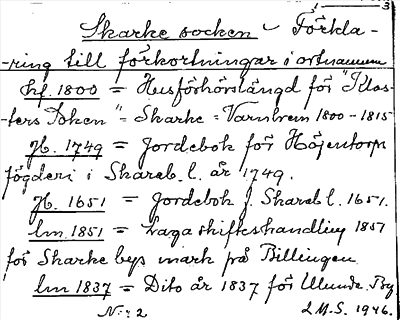 1 — 3
Skarke socken – Förkla-
-ring till förkortningar i ortnamnen
Hf. 1800 = Husförhörslängd för "Klos-
-ters Soken" = Skarke = Varnhem 1800-1815
Jb. 1749 = Jordebok för Höjentorps
fögderi i Skarab. l. år 1749.
Jb. 1651 = Jordebok f. Skarab l. 1651.
lm. 1851 = Laga skifteshandling 1851
för Skarke bys mark på Billingen
lm 1837 = Dito år 1837 för Ulunda By
N:r 2 L M.S. 1946.